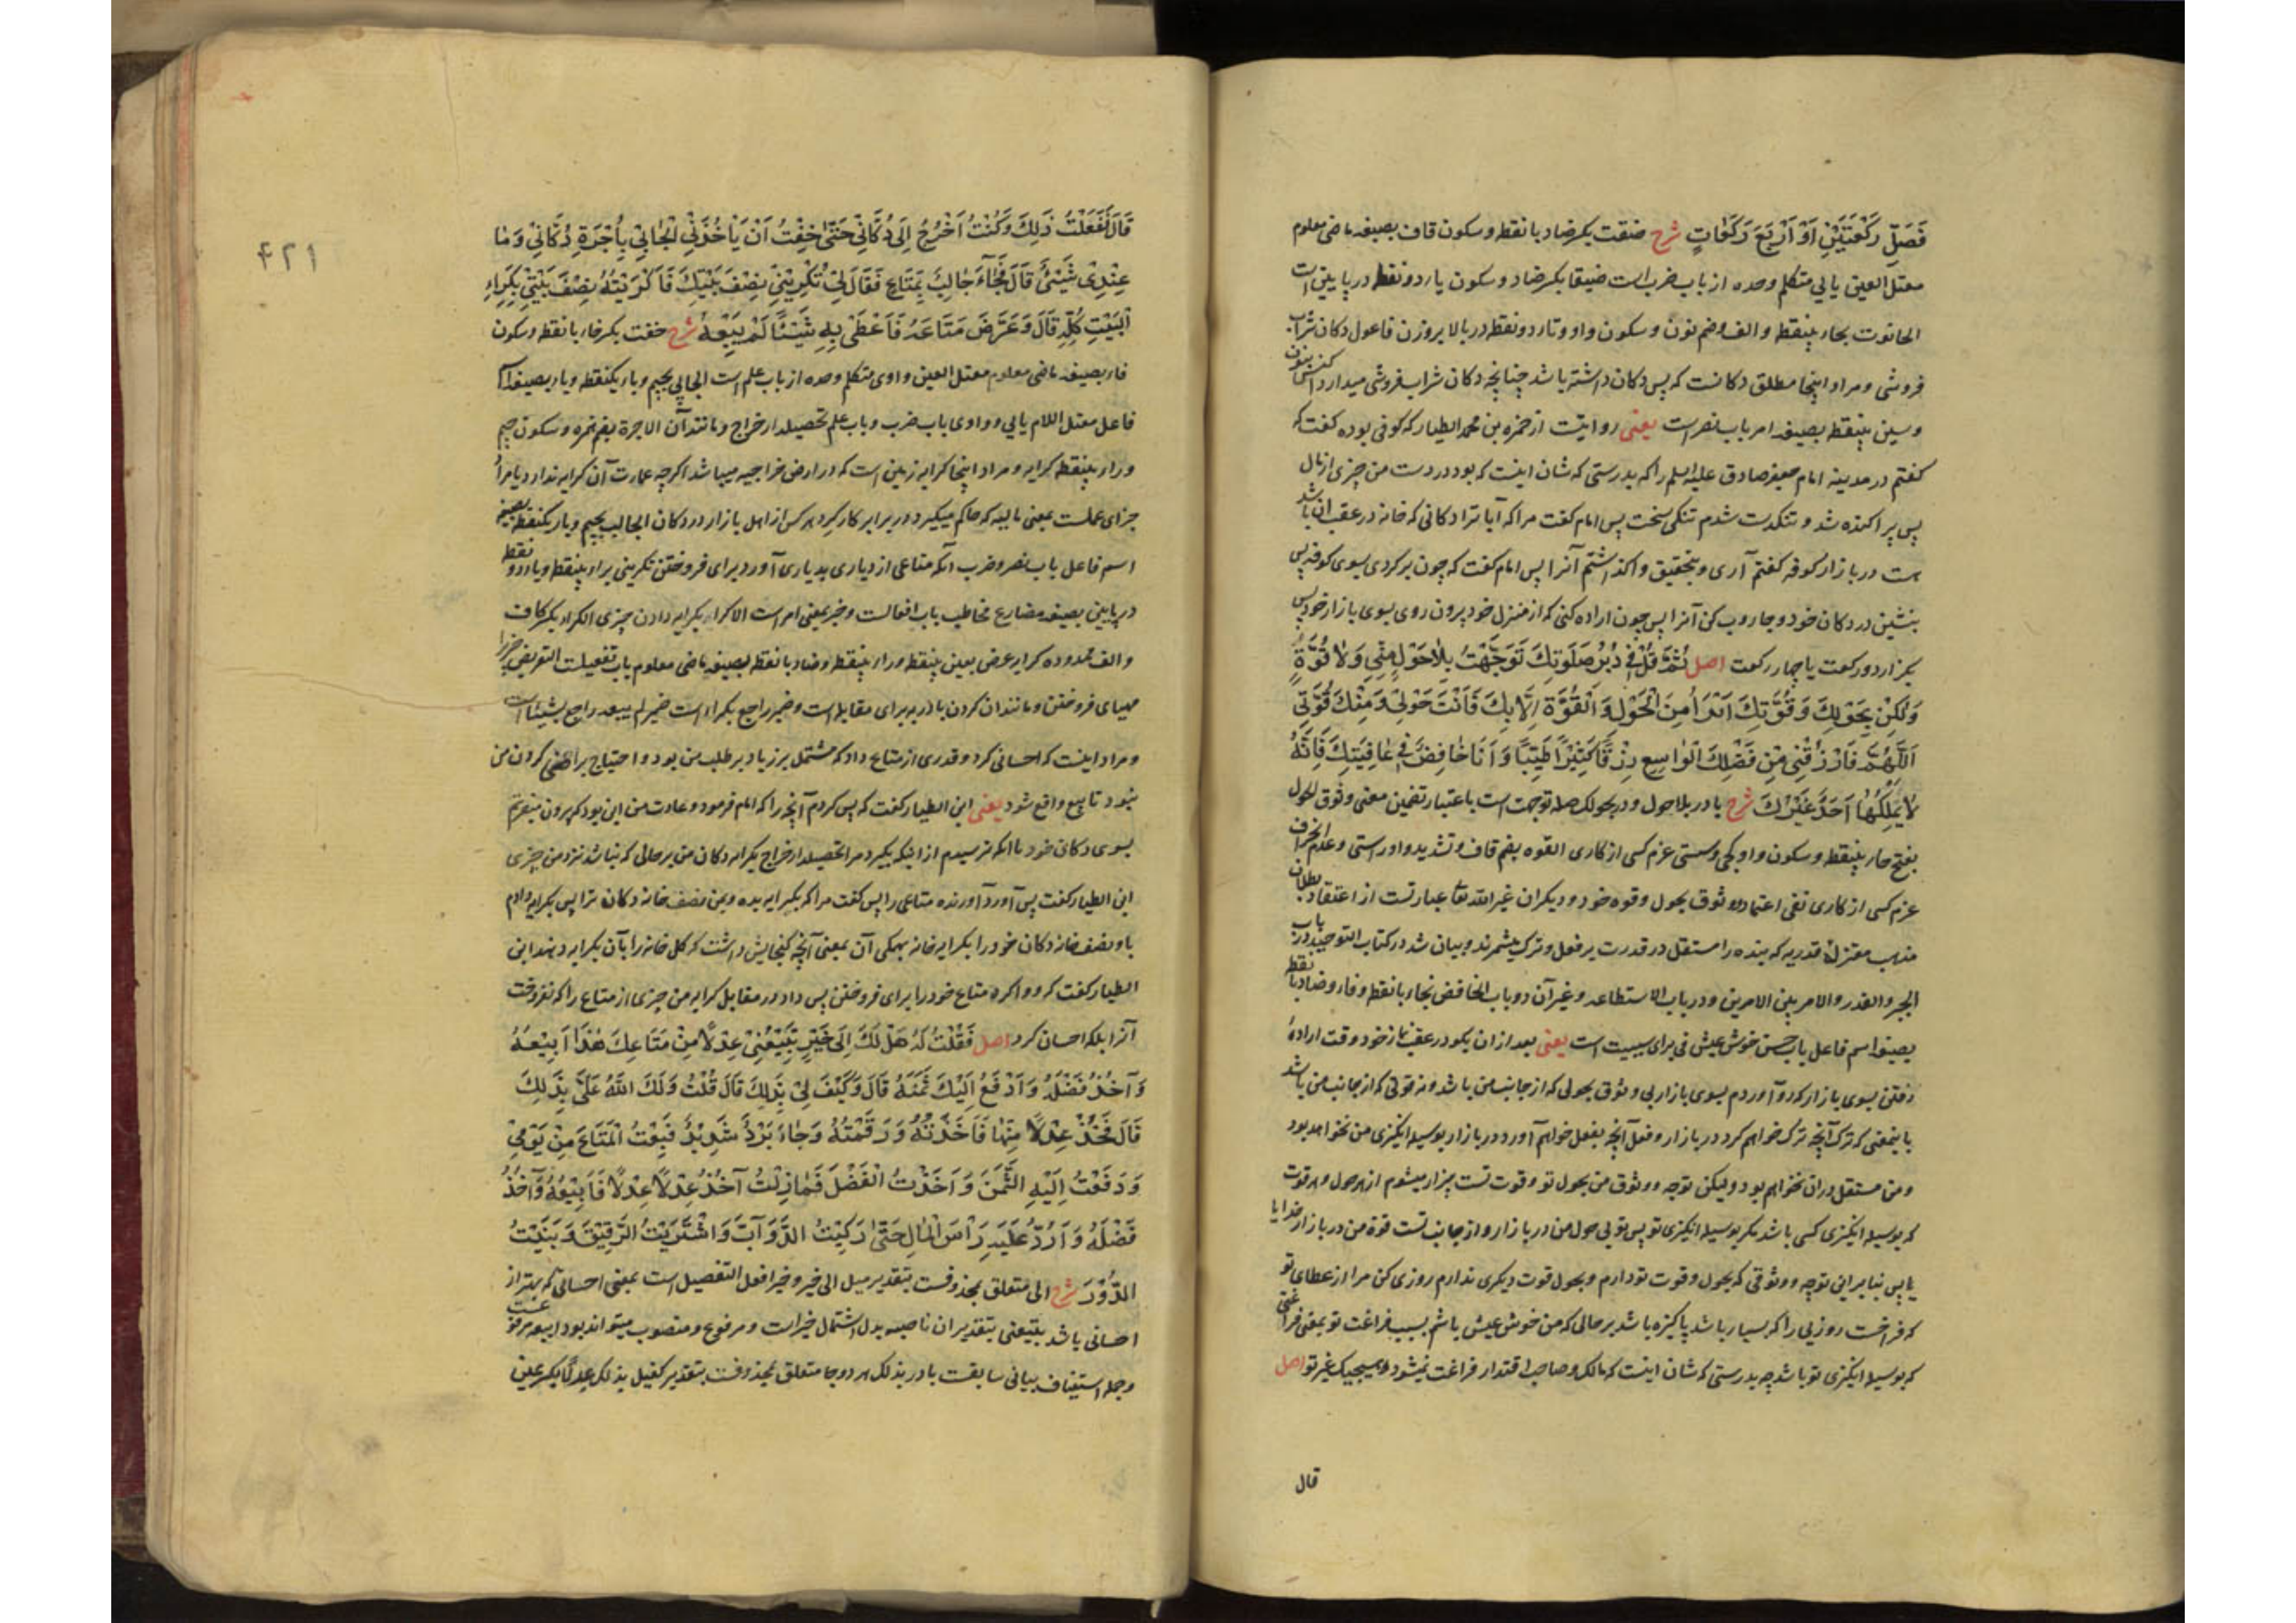 فَصَلِّ رَكْعَتَيْنِ اَوْ اَرْبَعَ رَكَعَاتٍ شرح ضقت بکسر ضاد با نقطه و سکون قاف بصیغه ماضی معلوم
معتل العین یایی متکلم وحده از باب ضرب است ضیقا بکسر ضاد و سکون یاء دو نقطه در پایین است
الحانوت بحاء بینقطه و الف و ضم نون و سکون واو و تاء دو نقطه در بالا بر وزن فاعول دکان شراب
فروشی و مراد اینجا مطلق دکانست که پس دکان داشته باشد چنانچه دکان شراب فروشی میدارد اکنس بنون
و سین بینقطه بصیغه امر باب نصر است یعنی روایتست از حمزه بن محمد الطیار که کوفی بوده گفت که
گفتم در مدینه امام جعفر صادق علیه السلم را که بدرستی که شان اینست که بود در دست من چیزی از مال
پس پراکنده شد و تنکدست شدم تنکی سخت پس امام گفت مرا که آیا ترا دکانی که خانه در عقب ان باشد
هست در بازار کوفه گفتم آری و بتحقیق واگذاشتم آنرا پس امام گفت که چون برگردی بسوی کوفه پس
بنشین در دکان خود و جاروب کن آنرا پس چون اراده کنی که از منزل خود بیرون روی بسوی بازار خود پس
بگزار دو رکعت یا چهار رکعت اصل ثُمَّ قُلْ فِي دُبُرِ صَلَوتِكَ تَوَجَّهْتُ بِلَاحَوْلٍ مِنِّي وَلَا قُوَّةٍ
وَلٰكِنْ بِحَوْلِكَ وَقُوَّتِكَ اَبْرَاُ مِنَ الْحَوْلِ وَالْقُوَّةِ اِلَّا بِكَ فَاَنْتَ حَوْلِي وَمِنْكَ قُوَّتِي
اَللّٰهُمَّ فَارْزُقْنِي مِنْ فَضْلِكَ الْوَاسِعِ رِزْقًا كَثِيْرًا طَيِّبًا وَاَنَا خَافِضٌ فِي عَافِيَتِكَ فَاِنَّهُ
لَا يَمْلِكُهَا اَحَدٌ غَيْرُكَ شرح با در بلا حول و در بحولک صله توجهت است باعتبار تضمین معنی وثوق الحول
بفتح حاء بینقطه و سکون واو کجی و سستی عزم کسی از کاری القوه بضم قاف و تشدید واو راستی و عدم انحراف
عزم کسی از کاری نفی اعتماد و وثوق بحول و قوه خود و دیکران غیر الله تعا عبارتست از اعتقاد بطلان
مذهب معتزله قدریه که بنده را مستقل در قدرت بر فعل و ترک میشمرند و بیان شد در کتاب التوحید در باب
الجبر و القدر و الامر بین الامرین و در باب الاستطاعه و غیر آن دو باب الخافض بخاء با نقطه و فاء و ضاد با نقطه
بصیغه اسم فاعل باب حسن خوش عیش فی برای سببیت است یعنی بعد از ان بکو در عقب نماز خود وقت اراده
رفتن بسوی بازار که رو آوردم بسوی بازار بی وثوق بحولی که از جانب من باشد و نه قوتی که از جانب من باشد
باینمعنی که ترک آنچه ترک خواهم کرد در بازار و فعل آنچه بفعل خواهم آورد در بازار بوسیله انکیزی من نخواهد بود
و من مستقل دران نخواهم بود ولیکن توجه و وثوق من بحول تو و قوت تست بیزار میشوم از هر حول و هر قوت
که بوسیله انکیزی کسی باشد مکر بوسیله انکیزی تو پس تویی حول من در بازار و از جانب تست قوة من در بازار خدایا
یا پس بنابراین توجه و وثوقی که بحول و قوت تو دارم و بحول قوت دیکری ندارم روزی کن مرا از عطای تو
که فراخست روزیی را که بسیار باشد پاکیزه باشد بر حالی که من خوش عیش باشم بسبب فراغت تو بمعنی فراغتی
که بوسیله انکیزی تو باشد چه بدرستی که شان اینست که مالک و صاحب اقتدار فراغت نمیشود هیچیک غیر تو اصل
قال
۴۲۱
قَالَ فَفَعَلْتُ ذٰلِكَ وَكُنْتُ اَخْرُجُ اِلَى دُكَّانِي حَتّٰى خِفْتُ اَنْ يَاْخُذَنِي الْجَابِي بِاُجْرَةِ دُكَّانِي وَمَا
عِنْدِي شَيْئٌ قَالَ فَجَآءَ جَالِبٌ بِمَتَاعٍ فَقَالَ لِي تُكْرِيْنِي نِصْفَ بَيْتِكَ فَاَكْرَيْتُهُ نِصْفَ بَيْتِي بِكِرَاءِ
الْبَيْتِ كُلِّهِ قَالَ وَعَرَضَ مَتَاعَهُ فَاَعْطَى بِهِ شَيْئًا لَمْ يَبِعْهُ شرح خفت بکسر خاء با نقطه و سکون
فاء بصیغه ماضی معلوم معتل العین واوی متکلم وحده از باب علم است الجابی بجیم و باء یکنقطه و یاء بصیغه اسم
فاعل معتل اللام یایی و واوی باب ضرب و باب علم تحصیلدار خراج و مانند آن الاجرة بضم همزه و سکون جیم
و راء بینقطه کرایه و مراد اینجا کرایه زمین است که در ارض خراجیه میباشد اکرچه عمارت آن کرایه ندارد یا مراد
جزای عملست بمعنی مالیه که حاکم میکیرد در برابر کار کرد هر کس از اهل بازار در دکان الجالب بجیم و باء یکنقطه بصیغه
اسم فاعل باب نصر و ضرب آنکه متاعی از دیاری بدیاری آورد برای فروختن تکرینی براء بینقطه و یاء دو نقطه
در پایین بصیغه مضارع مخاطب باب افعالست و خبر بمعنی امر است الاکراء بکرایه دادن چیزی الکراء بکسر کاف
و الف ممدوده کرایه عرض بعین بینقطه و راء بینقطه و ضاد با نقطه بصیغه ماضی معلوم باب تفعیلست التعریض چیزی را
مهیای فروختن و مانند ان کردن با در به برای مقابله است و ضمیر راجع بکراء است ضمیر لم یبعه راجع بشیئا است
و مراد اینست که احسانی کرد و قدری از متاع داد که مشتمل بر زیاد بر طلب من بود و احتیاج براضی کردن من
نبود تا بیع واقع شود یعنی ابن الطیار گفت که پس کردم آنچه را که امام فرمود و عادت من این بود که بیرون میرفتم
بسوی دکان خود تا آنکه ترسیدم از اینکه بکیرد مرا تحصیلدار خراج بکرایه دکان من بر حالی که نباشد نزد من چیزی
ابن الطیار گفت پس آورد آورنده متاعی را پس گفت مرا که بکرایه بده بمن نصف خانه دکان ترا پس بکرایه دادم
باو نصف خانه دکان خود را بکرایه خانه بهمکی آن بمعنی آنچه کنجایش داشت که کل خانه را بآن بکرایه دهند ابن
الطیار گفت که و وا کرد متاع خود را برای فروختن پس داد در مقابل کرایه من چیزی از متاع را که نفروخت
آنرا بلکه احسان کرد اصل فَقُلْتُ لَهُ هَلْ لَكَ اِلَى خَيْرٍ تَبِيْعُنِي عِدْلًا مِنْ مَتَاعِكَ هٰذَا اَبِيْعُهُ
وَآخُذُ فَضْلَهُ وَاَدْفَعُ اِلَيْكَ ثَمَنَهُ قَالَ وَكَيْفَ لِي بِذٰلِكَ قَالَ قُلْتُ وَلَكَ اللّٰهُ عَلَيَّ بِذٰلِكَ
قَالَ فَخُذْ عِدْلًا مِنْهَا فَاَخَذْتُهُ وَرَقَمْتُهُ وَجَاءَ بَرْدٌ شَدِيْدٌ فَبِعْتُ الْمَتَاعَ مِنْ يَوْمِي
وَدَفَعْتُ اِلَيْهِ الثَّمَنَ وَاَخَذْتُ الْفَضْلَ فَمَا زِلْتُ آخُذُ عِدْلًا عِدْلًا فَاَبِيْعُهُ وَآخُذُ
فَضْلَهُ وَاَرُدُّ عَلَيْهِ رَاْسَ الْمَالِ حَتّٰى رَكِبْتُ الدَّوَآبَّ وَاشْتَرَيْتُ الرَّقِيْقَ وَبَنَيْتُ
الدُّوْرَ شرح الی متعلق بمحذوفست بتقدیر میل الی خیر و خیر افعل التفضیل است بمعنی احسانی که بهتر از
احسانی باشد تبیعنی بتقدیر ان ناصبه بدل اشتمال خیر است و مرفوع و منصوب میتواند بود ابیعه مرفوعست
و جمله استیناف بیانی سابقست با در بذلک هر دو جا متعلق بمحذوفست بتقدیر کفیل بذلک عدلا بکسر عین